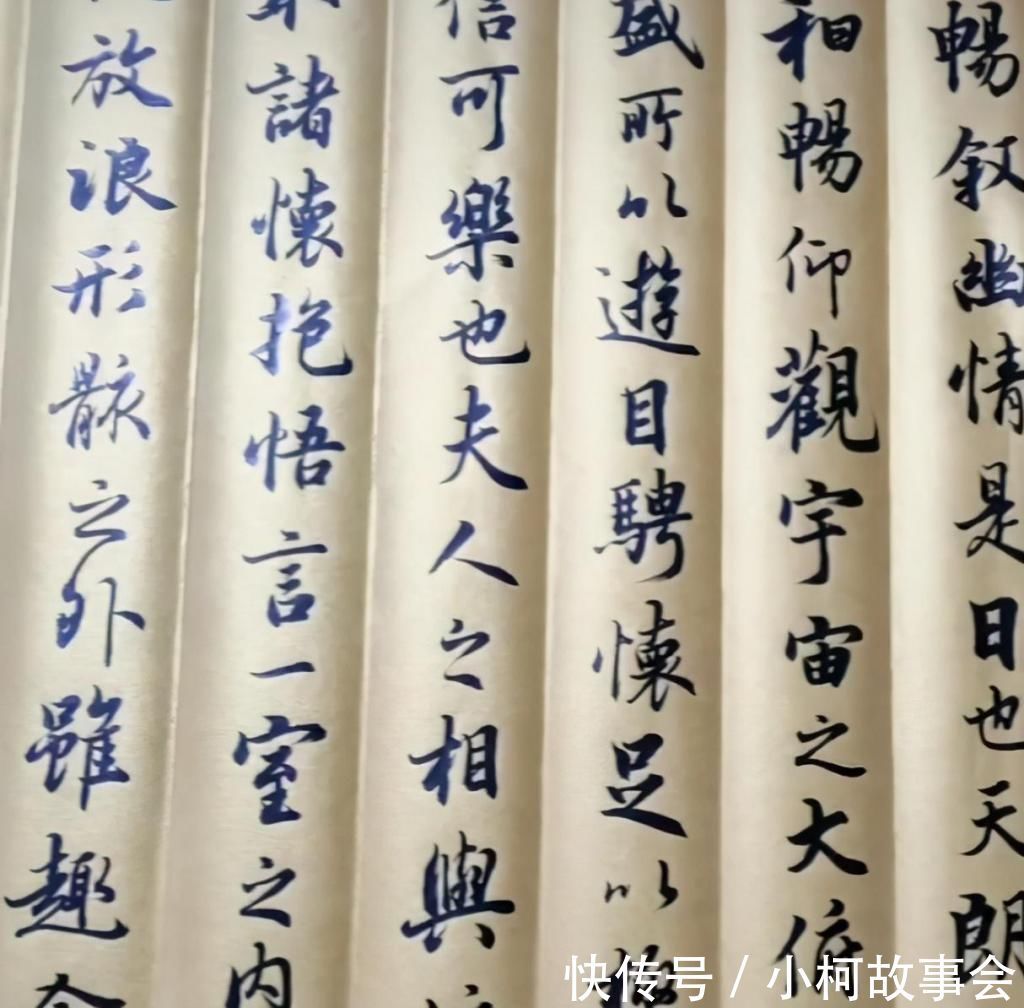 暢叙幽情是日也天朗
和暢仰觀宇宙之大俯
盛所以遊目騁懐足以
信可樂也夫人之相與
取諸懐抱悟言一室之内
放浪形骸之外雖趣
快传号 / 小柯故事会